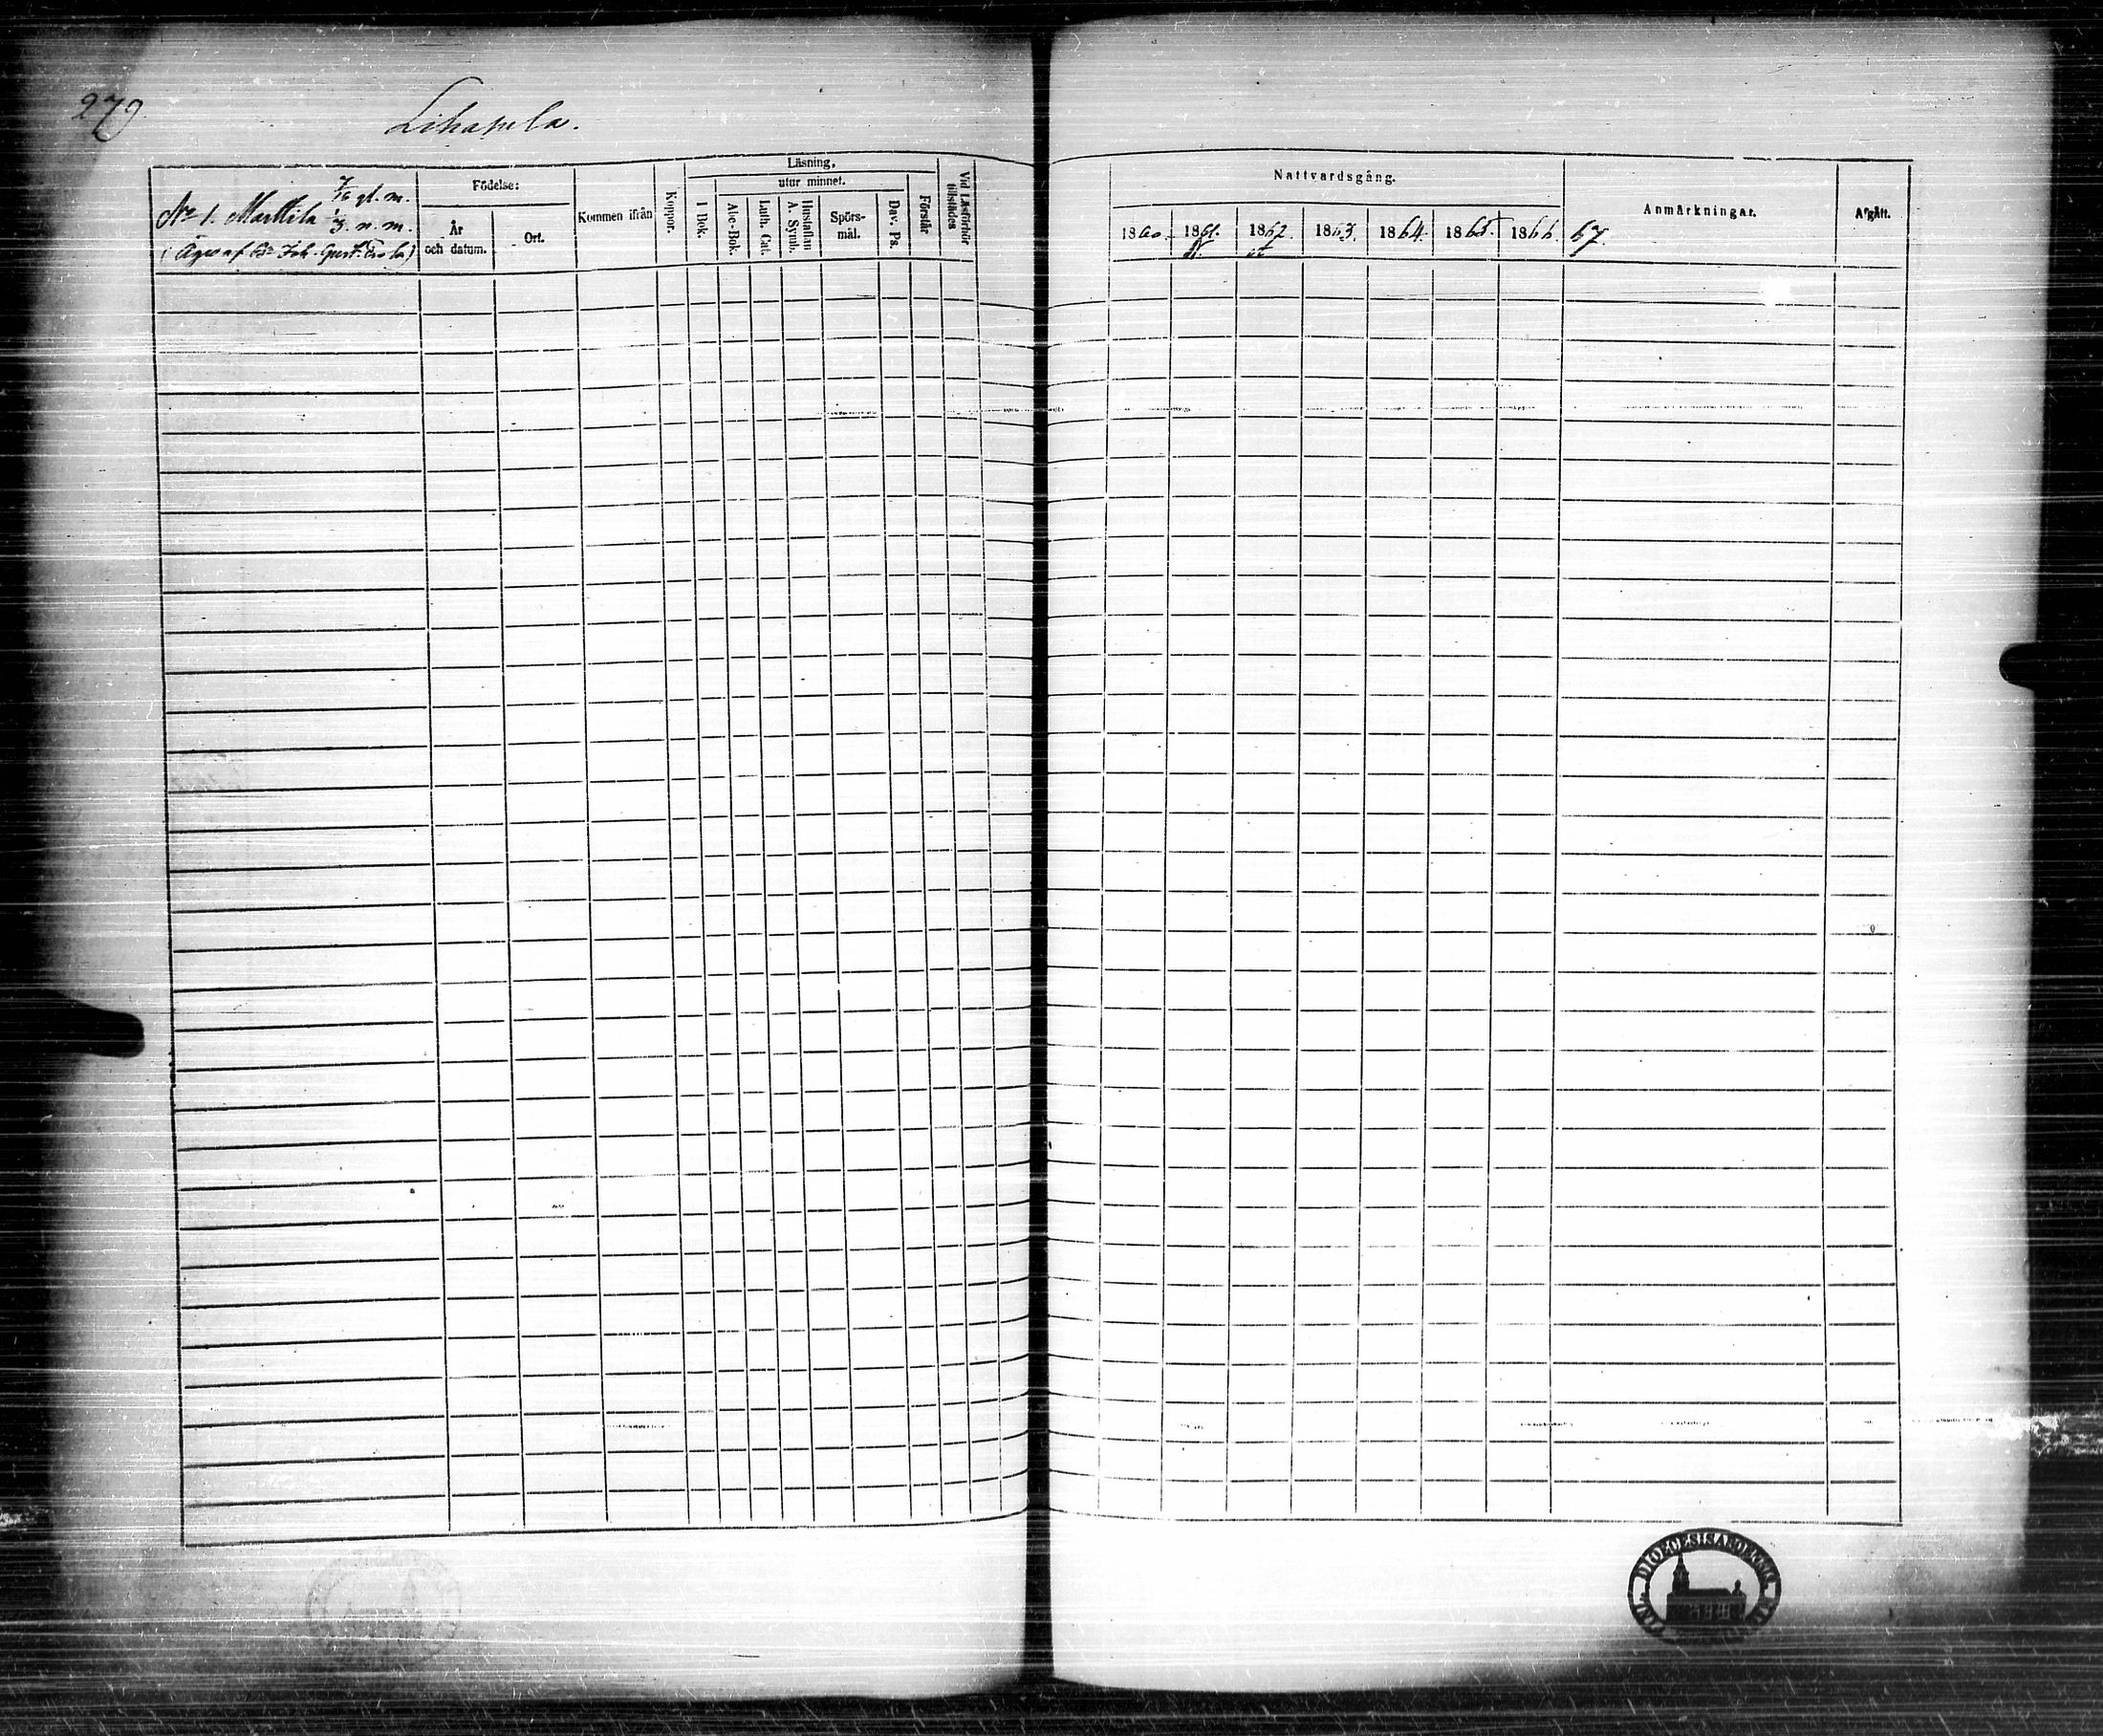 279.
Lihasula.
No 1. Marttila 7/16 gl. m.
1/3 n. m.
(Äges af Bn Joh. Gust.)
Födelse:
År
och datum.
Ort.
Kommen ifrån
Koppor.
Läsning.
I Bok.
utur minnet.
Abc-Bok.
Luth. Cat.
Hustaflan
A. Symb.
Spörs-
mål.
Dav. Ps.
Förstår
Vid Läsförhör
tillstädes
Nattvardsgång.
1860. 1861. 1862. 1863. 1864. 1865. 1866. 67.
Anmärkningar.
Afgått.
DIOECESIS ABOENSIS